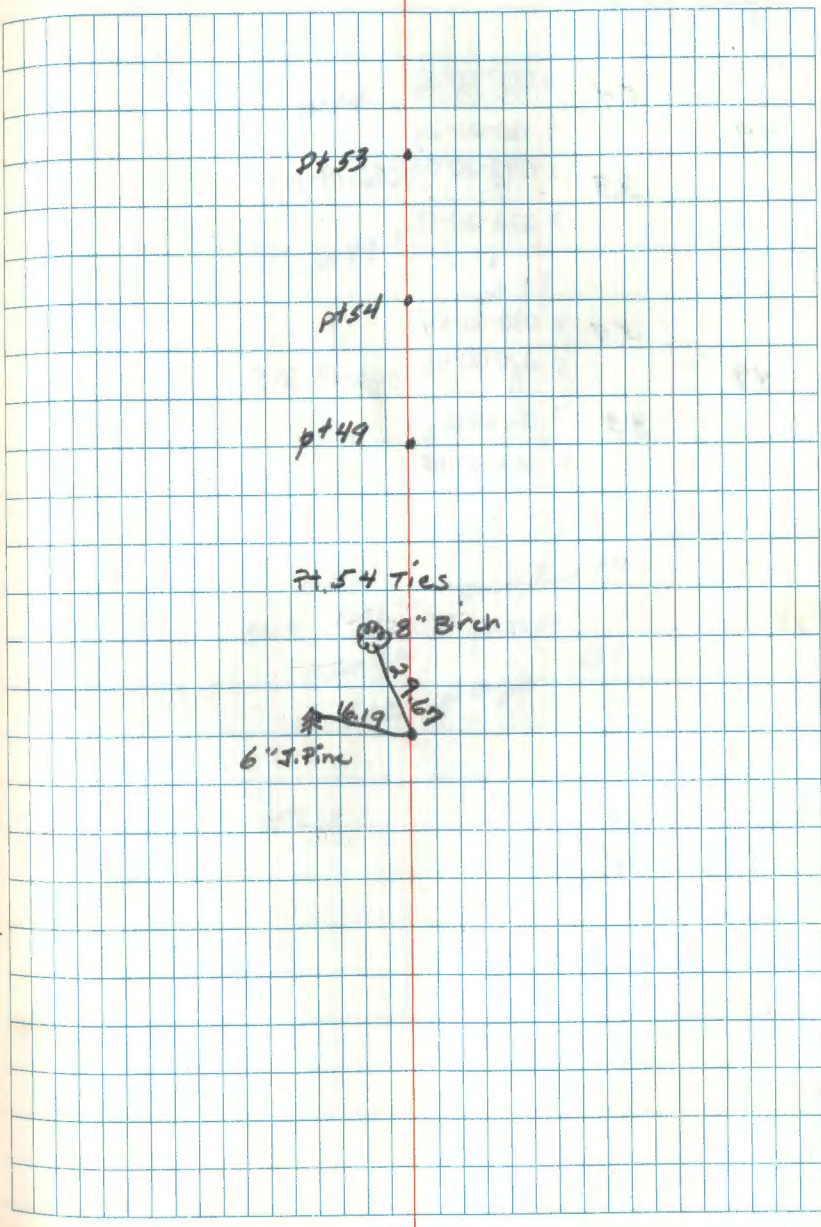 Pt 53
pt 54
pt 49
Pt. 54 Ties
8" Birch
29.67
16.19
6" J. Pine